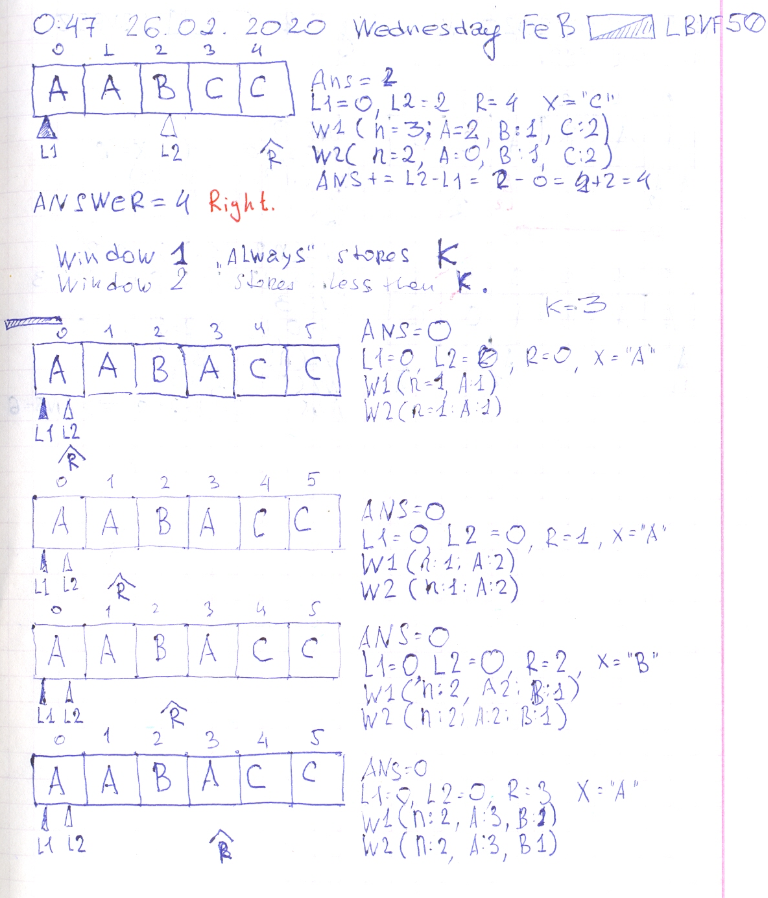 0:47 26.02.2020 Wednesday FeB LBVF50
0 1 2 3 4
A A B C C
L1 L2 R
Ans = 2
L1=0, L2=2 R=4 X="C"
W1 (n=3; A=2, B:1, C:2)
W2( n=2, A=0, B:1, C:2)
ANS += L2-L1 = 2-0 = 2+2=4
ANSWER = 4 Right.
Window 1 "Always" stores K
Window 2 stores less then K.
K=3
0 1 2 3 4 5
A A B A C C
L1 L2
R
ANS=0
L1=0, L2=0, R=0, X="A"
W1(n=1, A:1)
W2(n=1: A:1)
0 1 2 3 4 5
A A B A C C
L1 L2 R
ANS=0
L1=0, L2=0, R=1, X="A"
W1 (n:1; A:2)
W2 (n:1: A:2)
0 1 2 3 4 5
A A B A C C
L1 L2 R
ANS=0
L1=0, L2=0, R=2, X="B"
W1("n:2, A2; B:1)
W2 (n:2; A:2; B:1)
0 1 2 3 4 5
A A B A C C
L1 L2 R
ANS=0
L1=0, L2=0, R=3 X="A"
W1(n:2, A:3, B:1)
W2(n:2, A:3, B1)